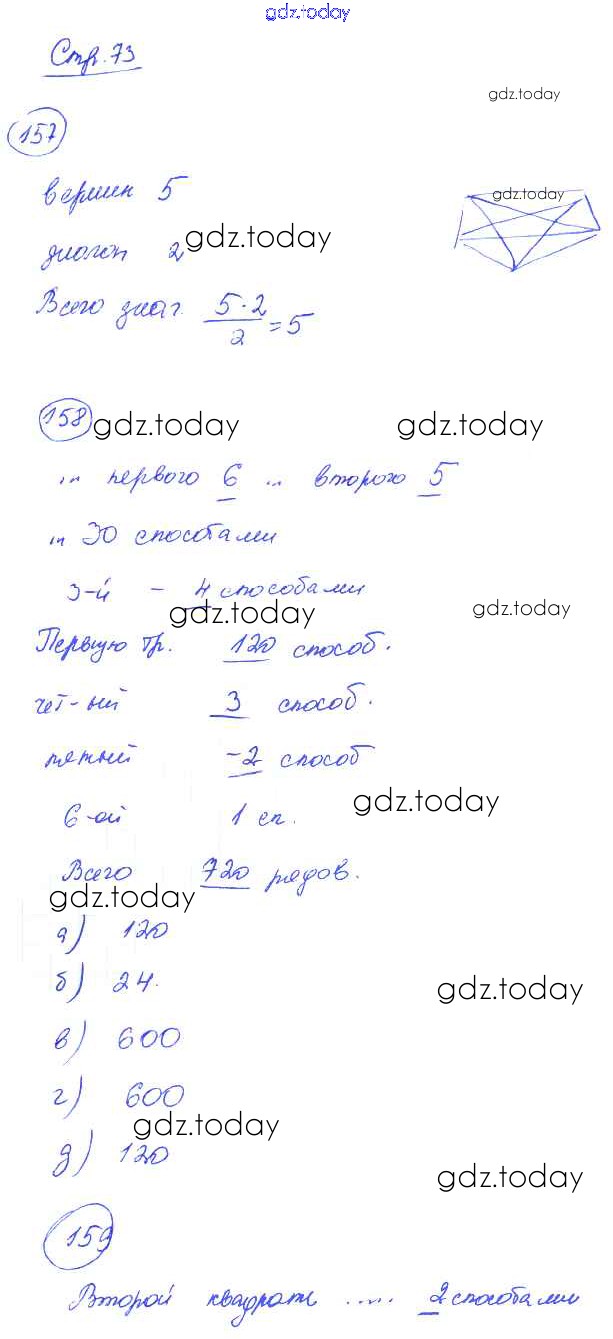 gdz.today
Стр. 73
gdz.today
157
вершин 5
gdz.today
диагон 2
gdz.today
Всего диаг. 5·2/2 = 5
158
gdz.today
gdz.today
... первого 6 ... второго 5
... 30 способами
3-й - 4 способами
gdz.today
gdz.today
Первую тр. 120 способ.
чет-ый 3 способ.
пятый -2 способ
gdz.today
6-ой 1 сп.
Всего 720 рядов.
gdz.today
а) 120
б) 24.
gdz.today
в) 600
г) 600
gdz.today
д) 120
gdz.today
159
Второй квадрат .... 2 способами